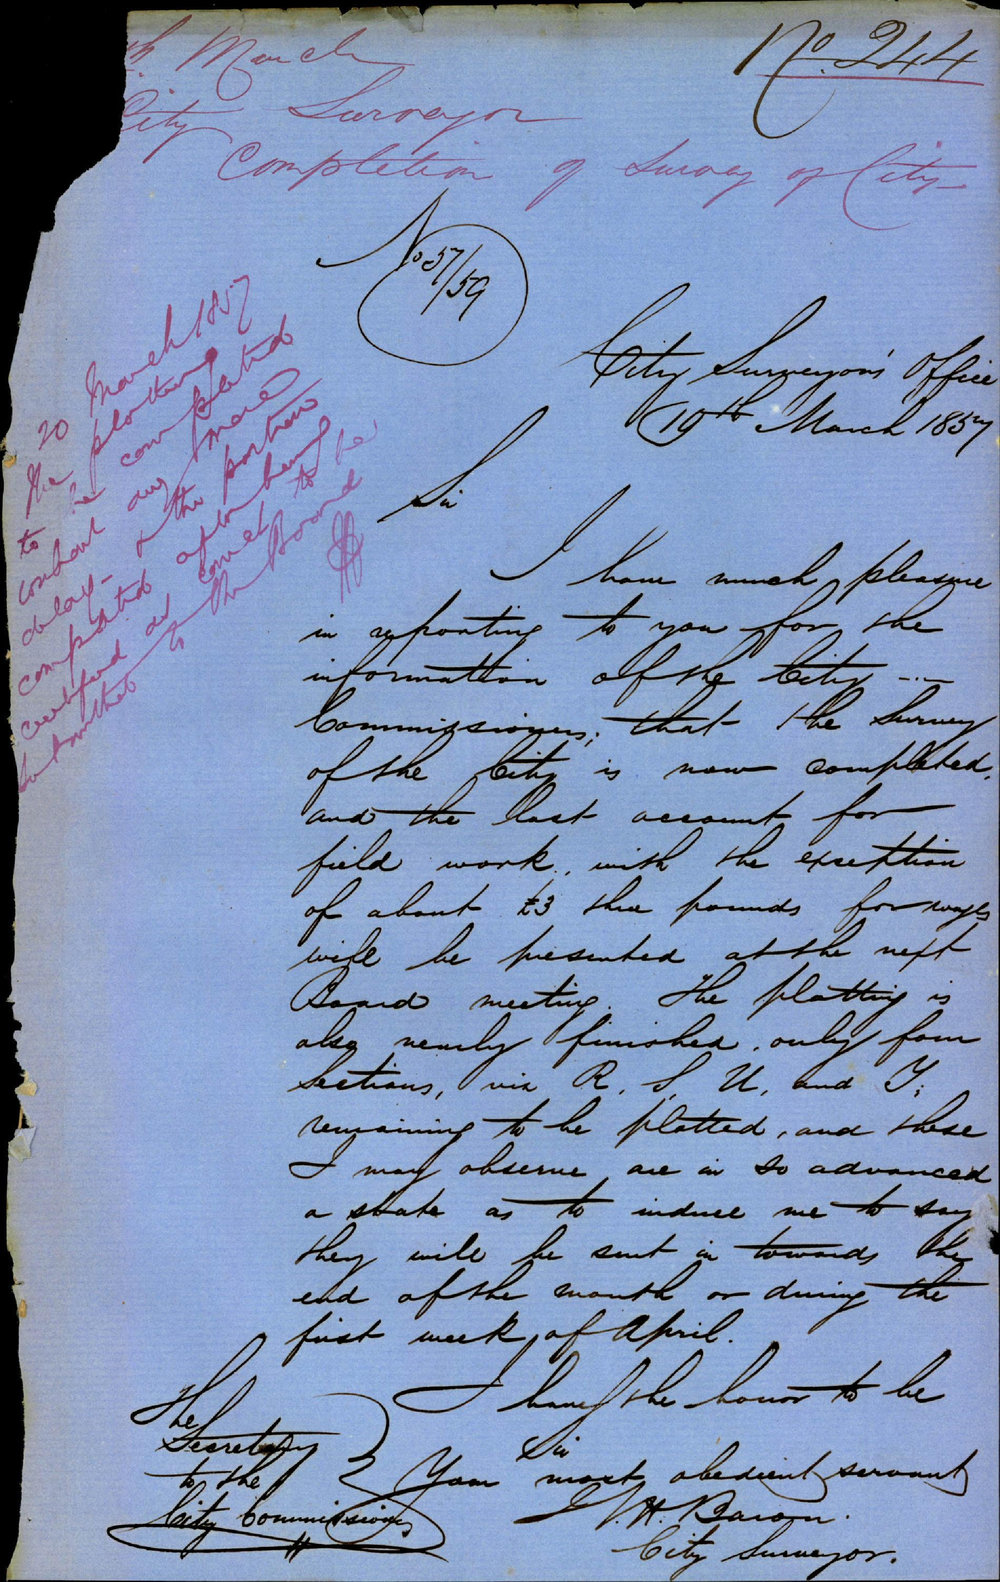 March
No. 244
City Surveyor
Completion of Survey of City
No 57/59
City Surveyor's Office
19th March 1857
Sir
I have much pleasure
in reporting to you for the
information of the City
Commissioners; that the Survey
of the City is now completed,
and the last account for
field work, with the exception
of about £3 three pounds for wages
will be presented at the next
Board meeting. The platting is
also nearly finished, only four
Sections, viz R, S, U, and Y;
remaining to be platted, and these
I may observe are in so advanced
a state as to induce me to say
they will be sent in towards the
end of the month or during the
first week of April.
I have the honor to be
Sir
Your most obedient servant
H. Baron.
City Surveyor.
The
Secretary
to the
City Commissioners
20 March 1857
the plotting
to be completed
without any more
delay - the portion
completed after being
certified as correct to be
to the Board